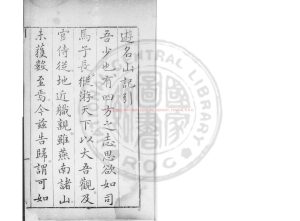 遊名山記引
吾少也有四方之志思欲如司
馬子長縱游天下以大吾觀及
官侍從地近職親雖燕南諸山
未獲數至焉今茲告歸謂可如
CENTRAL LIBRARY